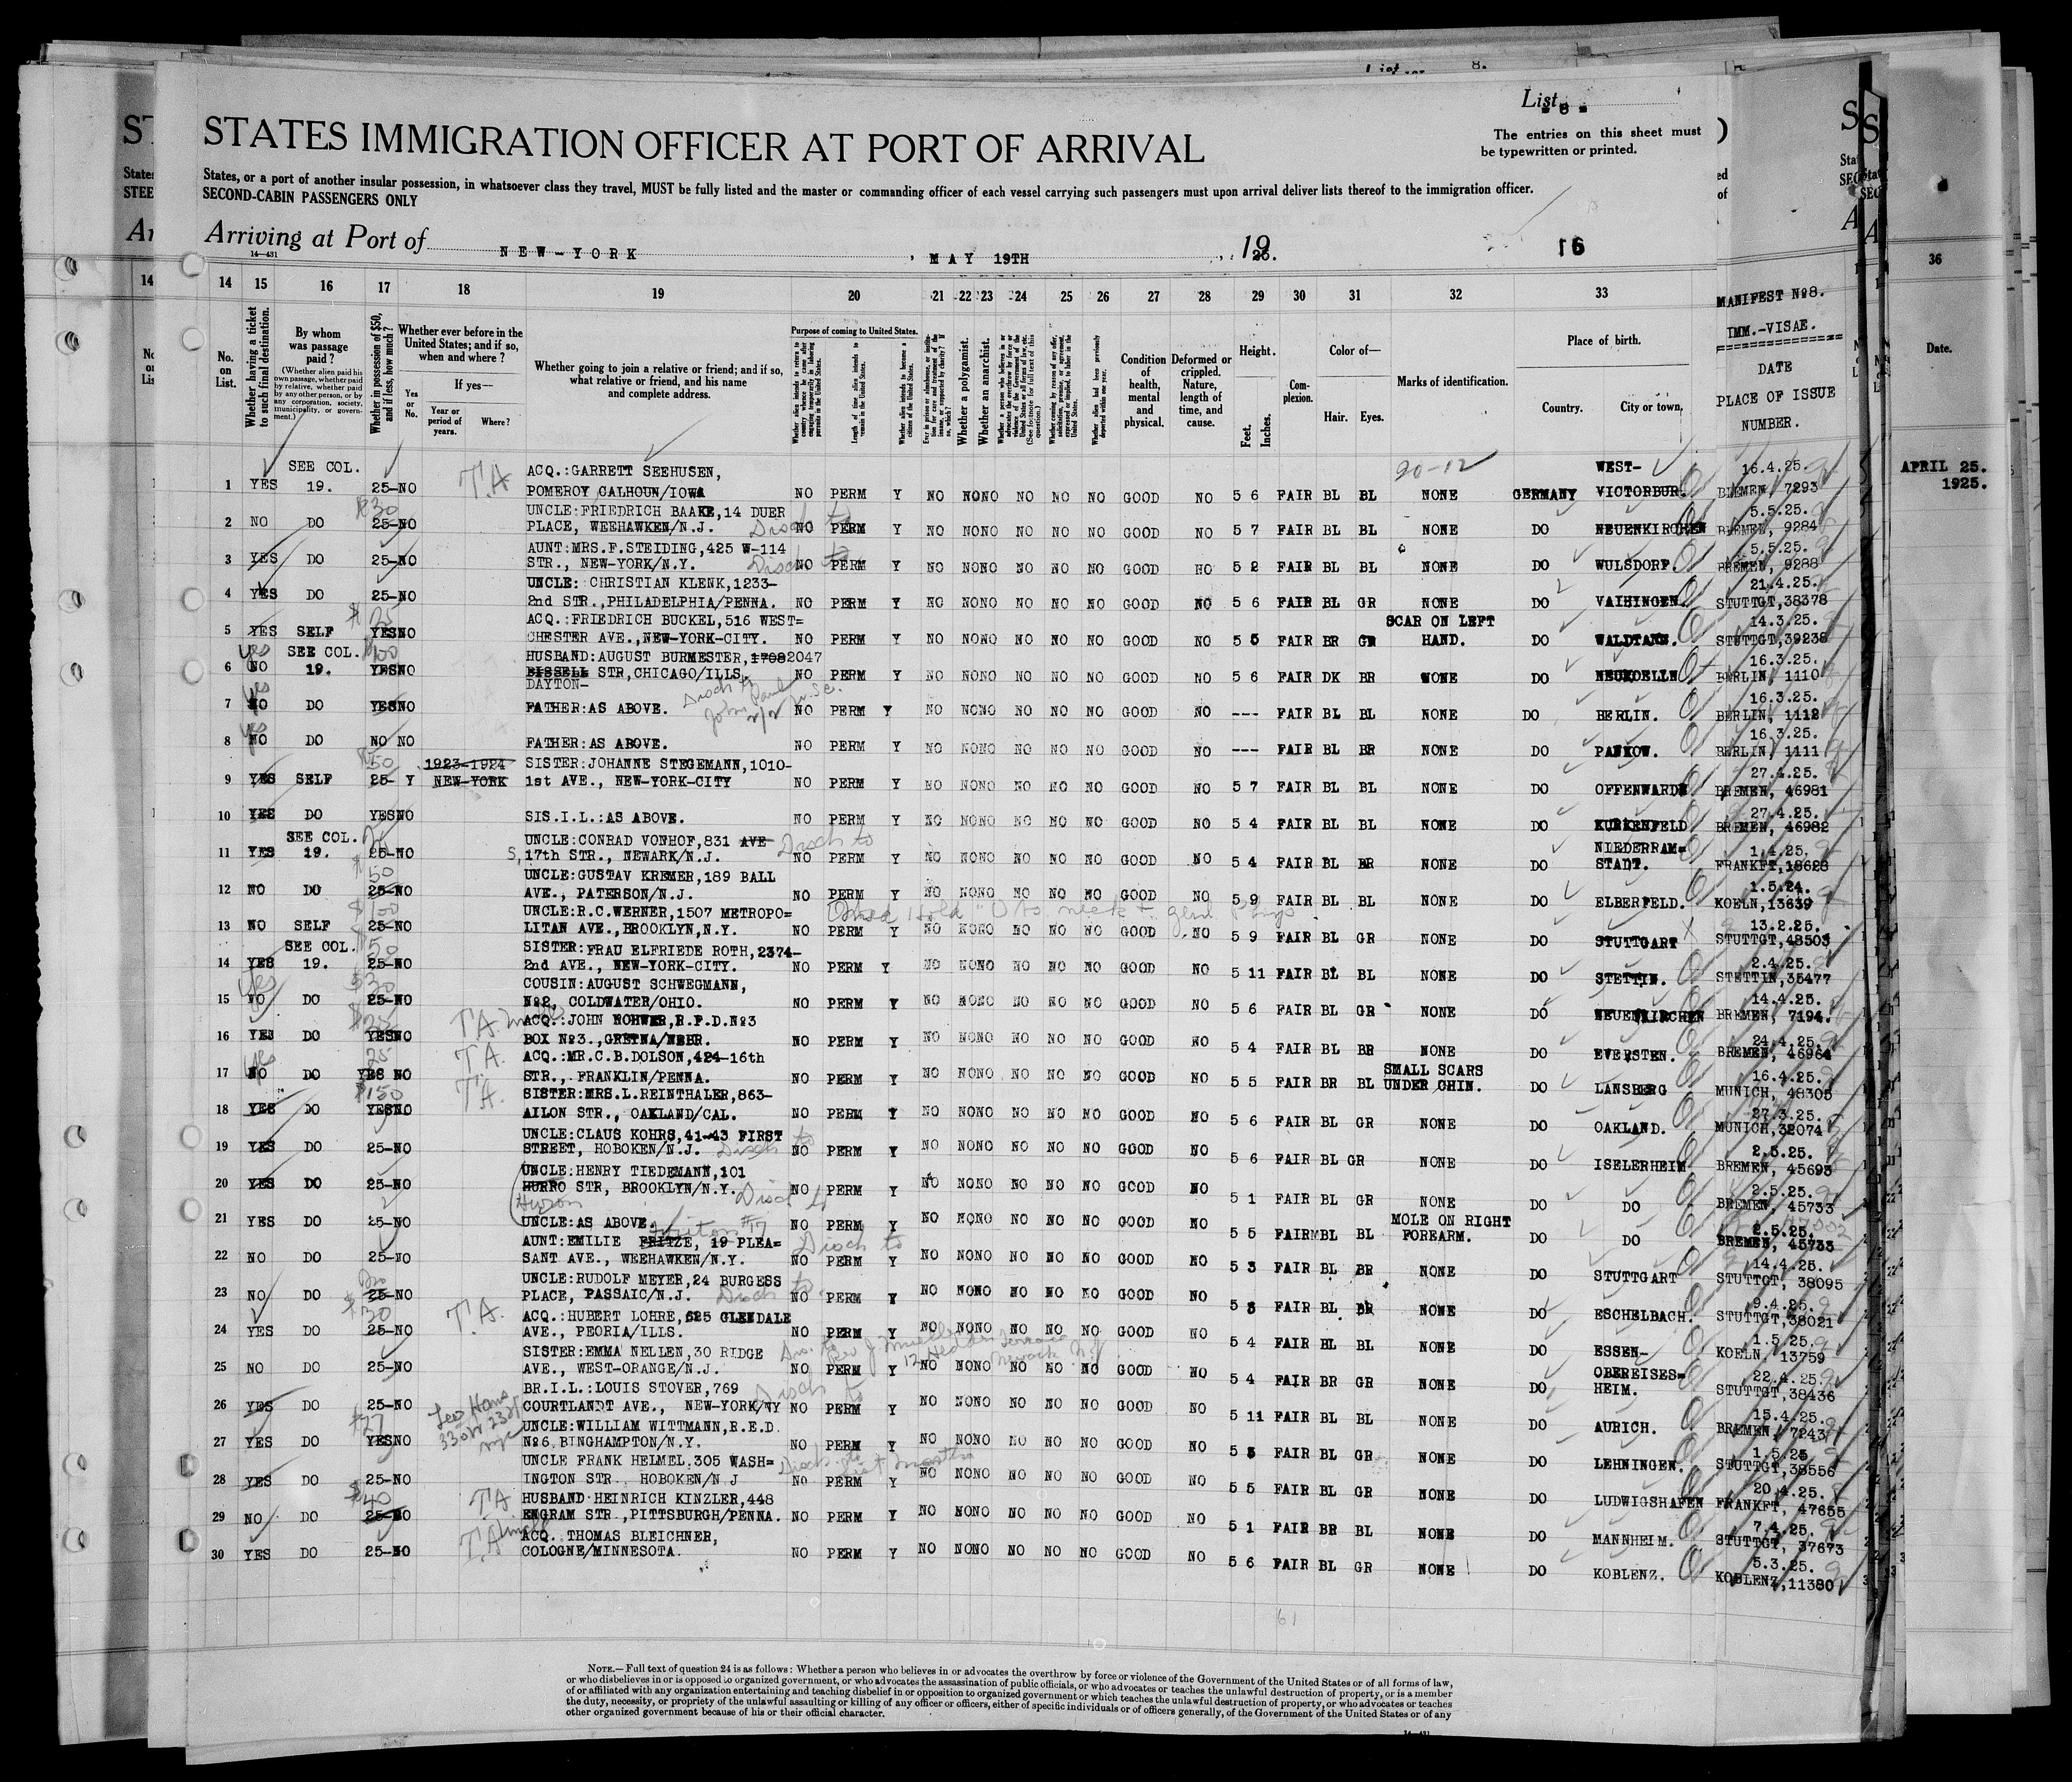 List 8
The entries on this sheet must
be typewritten or printed.
STATES IMMIGRATION OFFICER AT PORT OF ARRIVAL
States, or a port of another insular possession, in whatsoever class they travel, MUST be fully listed and the master or commanding officer of each vessel carrying such passengers must upon arrival deliver lists thereof to the immigration officer.
SECOND-CABIN PASSENGERS ONLY
Arriving at Port of NEW-YORK, MAY 19TH, 1925. 16
14—431
14 15 16 17 18 19 20 21 22 23 24 25 26 27 28 29 30 31 32 33
MANIFEST №8.
IMM.-VISAE.
DATE
PLACE OF ISSUE
NUMBER.
36
Date.
APRIL 25.
1925.
No. on List.
Whether having a ticket to such final destination.
By whom was passage paid?
(Whether alien paid his own passage, whether paid by relative, whether paid by any other person, or by any corporation, society, municipality, or government.)
Whether in possession of $50, and if less, how much?
Whether ever before in the United States; and if so, when and where?
Yes or No.
If yes—
Year or period of years.
Where?
Whether going to join a relative or friend; and if so, what relative or friend, and his name and complete address.
Purpose of coming to United States.
Length of time alien intends to remain in the United States.
Whether alien intends to become a citizen of the United States.
Whether a polygamist.
Whether an anarchist.
Condition of health, mental and physical.
Deformed or crippled. Nature, length of time, and cause.
Height.
Feet. Inches.
Complexion.
Color of—
Hair. Eyes.
Marks of identification.
Place of birth.
Country. City or town.
SEE COL. ACQ.:GARRETT SEEHUSEN, 20-12 WEST- 16.4.25.
1 YES 19. 25-NO T.A POMEROY CALHOUN/IOWA NO PERM Y NO NONO NO NO NO GOOD NO 5 6 FAIR BL BL NONE GERMANY VICTORBUR. BREMEN, 7293
$30 UNCLE:FRIEDRICH BAAKE,14 DUER 5.5.25.
2 NO DO 25-NO PLACE, WEEHAWKEN/N.J. Disch to NO PERM Y NO NONO NO NO NO GOOD NO 5 7 FAIR BL BL NONE DO NEUENKIRCHEN BREMEN, 9284
AUNT:MRS.F.STEIDING,425 W-114 5.5.25.
3 YES DO 25-NO STR., NEW-YORK/N.Y. Disch to NO PERM Y NO NONO NO NO NO GOOD NO 5 2 FAIR BL BL NONE DO WULSDORF. BREMEN, 9288
UNCLE: CHRISTIAN KLENK,1233- 21.4.25.
4 YES DO 25-NO 2nd STR.,PHILADELPHIA/PENNA. NO PERM Y NO NONO NO NO NO GOOD NO 5 6 FAIR BL GR NONE DO VAIHINGEN. STUTTGT,38378
$25 ACQ.:FRIEDRICH BUCKEL,516 WEST= SCAR ON LEFT 14.3.25.
5 YES SELF YESNO CHESTER AVE.,NEW-YORK-CITY. NO PERM Y NO NONO NO NO NO GOOD NO 5 5 FAIR BR GR HAND. DO STUTTGT,39238
yes SEE COL. HUSBAND:AUGUST BURMESTER,1708 2047 16.3.25.
6 NO 19. YESNO BISSELL STR,CHICAGO/ILLS. NO PERM Y NO NONO NO NO NO GOOD NO 5 6 FAIR DK BR NONE DO NEUKOELLN BERLIN, 1110
DAYTON-
yes 16.3.25.
7 NO DO YESNO FATHER:AS ABOVE. NO PERM Y NO NONO NO NO NO GOOD NO --- FAIR BL BL NONE DO BERLIN. BERLIN, 1112
yes 16.3.25.
8 NO DO NO NO FATHER:AS ABOVE. NO PERM Y NO NONO NO NO NO GOOD NO --- FAIR BL BR NONE DO PANKOW. BERLIN, 1111
$50 1923-1924 SISTER:JOHANNE STEGEMANN,1010- 27.4.25.
9 YES SELF 25- Y NEW-YORK 1st AVE., NEW-YORK-CITY NO PERM Y NO NONO NO NO NO GOOD NO 5 7 FAIR BL BL NONE DO OFFENWARDE BREMEN, 46981
27.4.25.
10 YES DO YESNO SIS.I.L.:AS ABOVE. NO PERM Y NO NONO NO NO NO GOOD NO 5 4 FAIR BL BL NONE DO KURKENFELD BREMEN, 46982
SEE COL. UNCLE:CONRAD VONHOF,831 AVE Disch to NIEDERRAM= 1.4.25.
11 YES 19. 25-NO S, 17th STR., NEWARK/N.J. NO PERM Y NO NONO NO NO NO GOOD NO 5 4 FAIR BL BR NONE DO STADT. FRANKFT,18628
50 UNCLE:GUSTAV KREMER,189 BALL 1.5.24.
12 NO DO 25-NO AVE., PATERSON/N.J. NO PERM Y NO NONO NO NO NO GOOD NO 5 9 FAIR BL BL NONE DO ELBERFELD. KOELN,13639
$100 UNCLE:R.C.WERNER,1507 METROPO= 13.2.25.
13 NO SELF 25-NO LITAN AVE.,BROOKLYN,N.Y. NO PERM Y NO NONO NO NO NO GOOD NO 5 9 FAIR BL GR NONE DO STUTTGART X STUTTGT,48503
SEE COL. SISTER:FRAU ELFRIEDE ROTH,2374- 2.4.25.
14 YES 19. 25-NO 2nd AVE., NEW-YORK-CITY. NO PERM Y NO NONO NO NO NO GOOD NO 5 11 FAIR BL BL NONE DO STETTIN. STETTIN,35477
yes $30 COUSIN:AUGUST SCHWEGMANN, 14.4.25.
15 NO DO 25-NO №2, COLDWATER/OHIO. NO PERM Y NO NONO NO NO NO GOOD NO 5 6 FAIR BL GR NONE DO NEUENKIRCHEN BREMEN, 7194.
T.A. ACQ.:JOHN ROHWER,R.P.D.№3 24.4.25.
16 YES DO YESNO BOX №3.,GRETNA/NEBR. NO PERM Y NO NONO NO NO NO GOOD NO 5 4 FAIR BL BR NONE DO EVERSTEN. BREMEN, 46964
yes 25 T.A. ACQ.:MR.C.B.DOLSON,424-16th SMALL SCARS 16.4.25.
17 NO DO YES NO STR., FRANKLIN/PENNA. NO PERM Y NO NONO NO NO NO GOOD NO 5 5 FAIR BR BL UNDER CHIN. DO LANSBERG MUNICH, 48305
$150 T.A. SISTER:MRS.L.REINTHALER,863- 27.3.25.
18 YES DO YESNO AILON STR., OAKLAND/CAL. NO PERM Y NO NONO NO NO NO GOOD NO 5 6 FAIR BL GR NONE DO OAKLAND. MUNICH,32074
UNCLE:CLAUS KOHRS,41-43 FIRST to 2.5.25.
19 YES DO 25-NO STREET, HOBOKEN/N.J. Disch NO PERM Y NO NONO NO NO NO GOOD NO 5 6 FAIR BL GR NONE DO ISELERHEIM BREMEN, 45693
UNCLE:HENRY TIEDEMANN,101 2.5.25.
20 YES DO 25-NO HURRO STR, BROOKLYN/N.Y. Disch to NO PERM Y NO NONO NO NO NO GOOD NO 5 1 FAIR BL GR NONE DO DO BREMEN, 45733
Huron MOLE ON RIGHT
21 YES DO 25-NO UNCLE:AS ABOVE. NO PERM Y NO NONO NO NO NO GOOD NO 5 5 FAIR BL BL FOREARM. DO DO 2.5.25. BREMEN, 45733
AUNT:EMILIE PRITZE, 19 PLEA= Disch to 14.4.25.
22 NO DO 25-NO SANT AVE., WEEHAWKEN/N.Y. NO PERM Y NO NONO NO NO NO GOOD NO 5 3 FAIR BL BR NONE DO STUTTGART STUTTGT, 38095
UNCLE:RUDOLF MEYER,24 BURGESS to 9.4.25.
23 NO DO 25-NO PLACE, PASSAIC/N.J. Disch NO PERM Y NO NONO NO NO NO GOOD NO 5 3 FAIR BL BR NONE DO ESCHELBACH. STUTTGT,38021
$30 T.A. ACQ.:HUBERT LOHRE,625 GLENDALE 1.5.25.
24 YES DO 25-NO AVE., PEORIA/ILLS. NO PERM Y NO NONO NO NO NO GOOD NO 5 4 FAIR HL BL NONE DO ESSEN- KOELN. 13759
SISTER:EMMA NELLEN,30 RIDGE OBEREISES= 22.4.25.
25 NO DO 25-NO AVE., WEST-ORANGE/N.J. NO PERM Y NO NONO NO NO NO GOOD NO 5 4 FAIR BR GR NONE DO HEIM. STUTTGT,38436
BR.I.L.:LOUIS STOVER,769 Disch to 15.4.25.
26 YES DO 25-NO COURTLANDT AVE., NEW-YORK/NY NO PERM Y NO NONO NO NO NO GOOD NO 5 11 FAIR BL BL NONE DO AURICH. BREMEN, 7243
UNCLE:WILLIAM WITTMANN,R.E.D. 1.5.25
27 YES DO YESNO №6 BINGHAMPTON/N.Y. NO PERM Y NO NONO NO NO NO GOOD NO 5 5 FAIR BL GR NONE DO LEHNINGEN. STUTTGT,38556
UNCLE FRANK HELMEL.305 WASH= Disch to 20.4.25.
28 YES DO 25-NO INGTON STR. HOBOKEN/N J NO PERM Y NO NONO NO NO NO GOOD NO 5 5 FAIR BL GR NONE DO LUDWIGSHAFEN FRANKFT, 47655
$40 T.A HUSBAND HEINRICH KINZLER,448 7.4.25.
29 NO DO 25-NO ENGRAM STR.,PITTSBURGH/PENNA. NO PERM Y NO NONO NO NO NO GOOD NO 5 1 FAIR BR BL NONE DO MANNHEIM. STUTTGT, 37673
T.A ACQ. THOMAS BLEICHNER, 5.3.25.
30 YES DO 25-NO COLOGNE/MINNESOTA. NO PERM Y NO NONO NO NO NO GOOD NO 5 6 FAIR BL GR NONE DO KOBLENZ. KOBLENZ,11380
61
NOTE.—Full text of question 24 is as follows: Whether a person who believes in or advocates the overthrow by force or violence of the Government of the United States or of all forms of law,
or who disbelieves in or is opposed to organized government, or who advocates the assassination of public officials, or who advocates or teaches the unlawful destruction of property, or is a member
of or affiliated with any organization entertaining and teaching disbelief in or opposition to organized government or which teaches the unlawful destruction of property, or who advocates or teaches
the duty, necessity, or propriety of the unlawful assaulting or killing of any officer or officers, either of specific individuals or of officers generally, of the Government of the United States or of any
other organized government because of his or their official character.